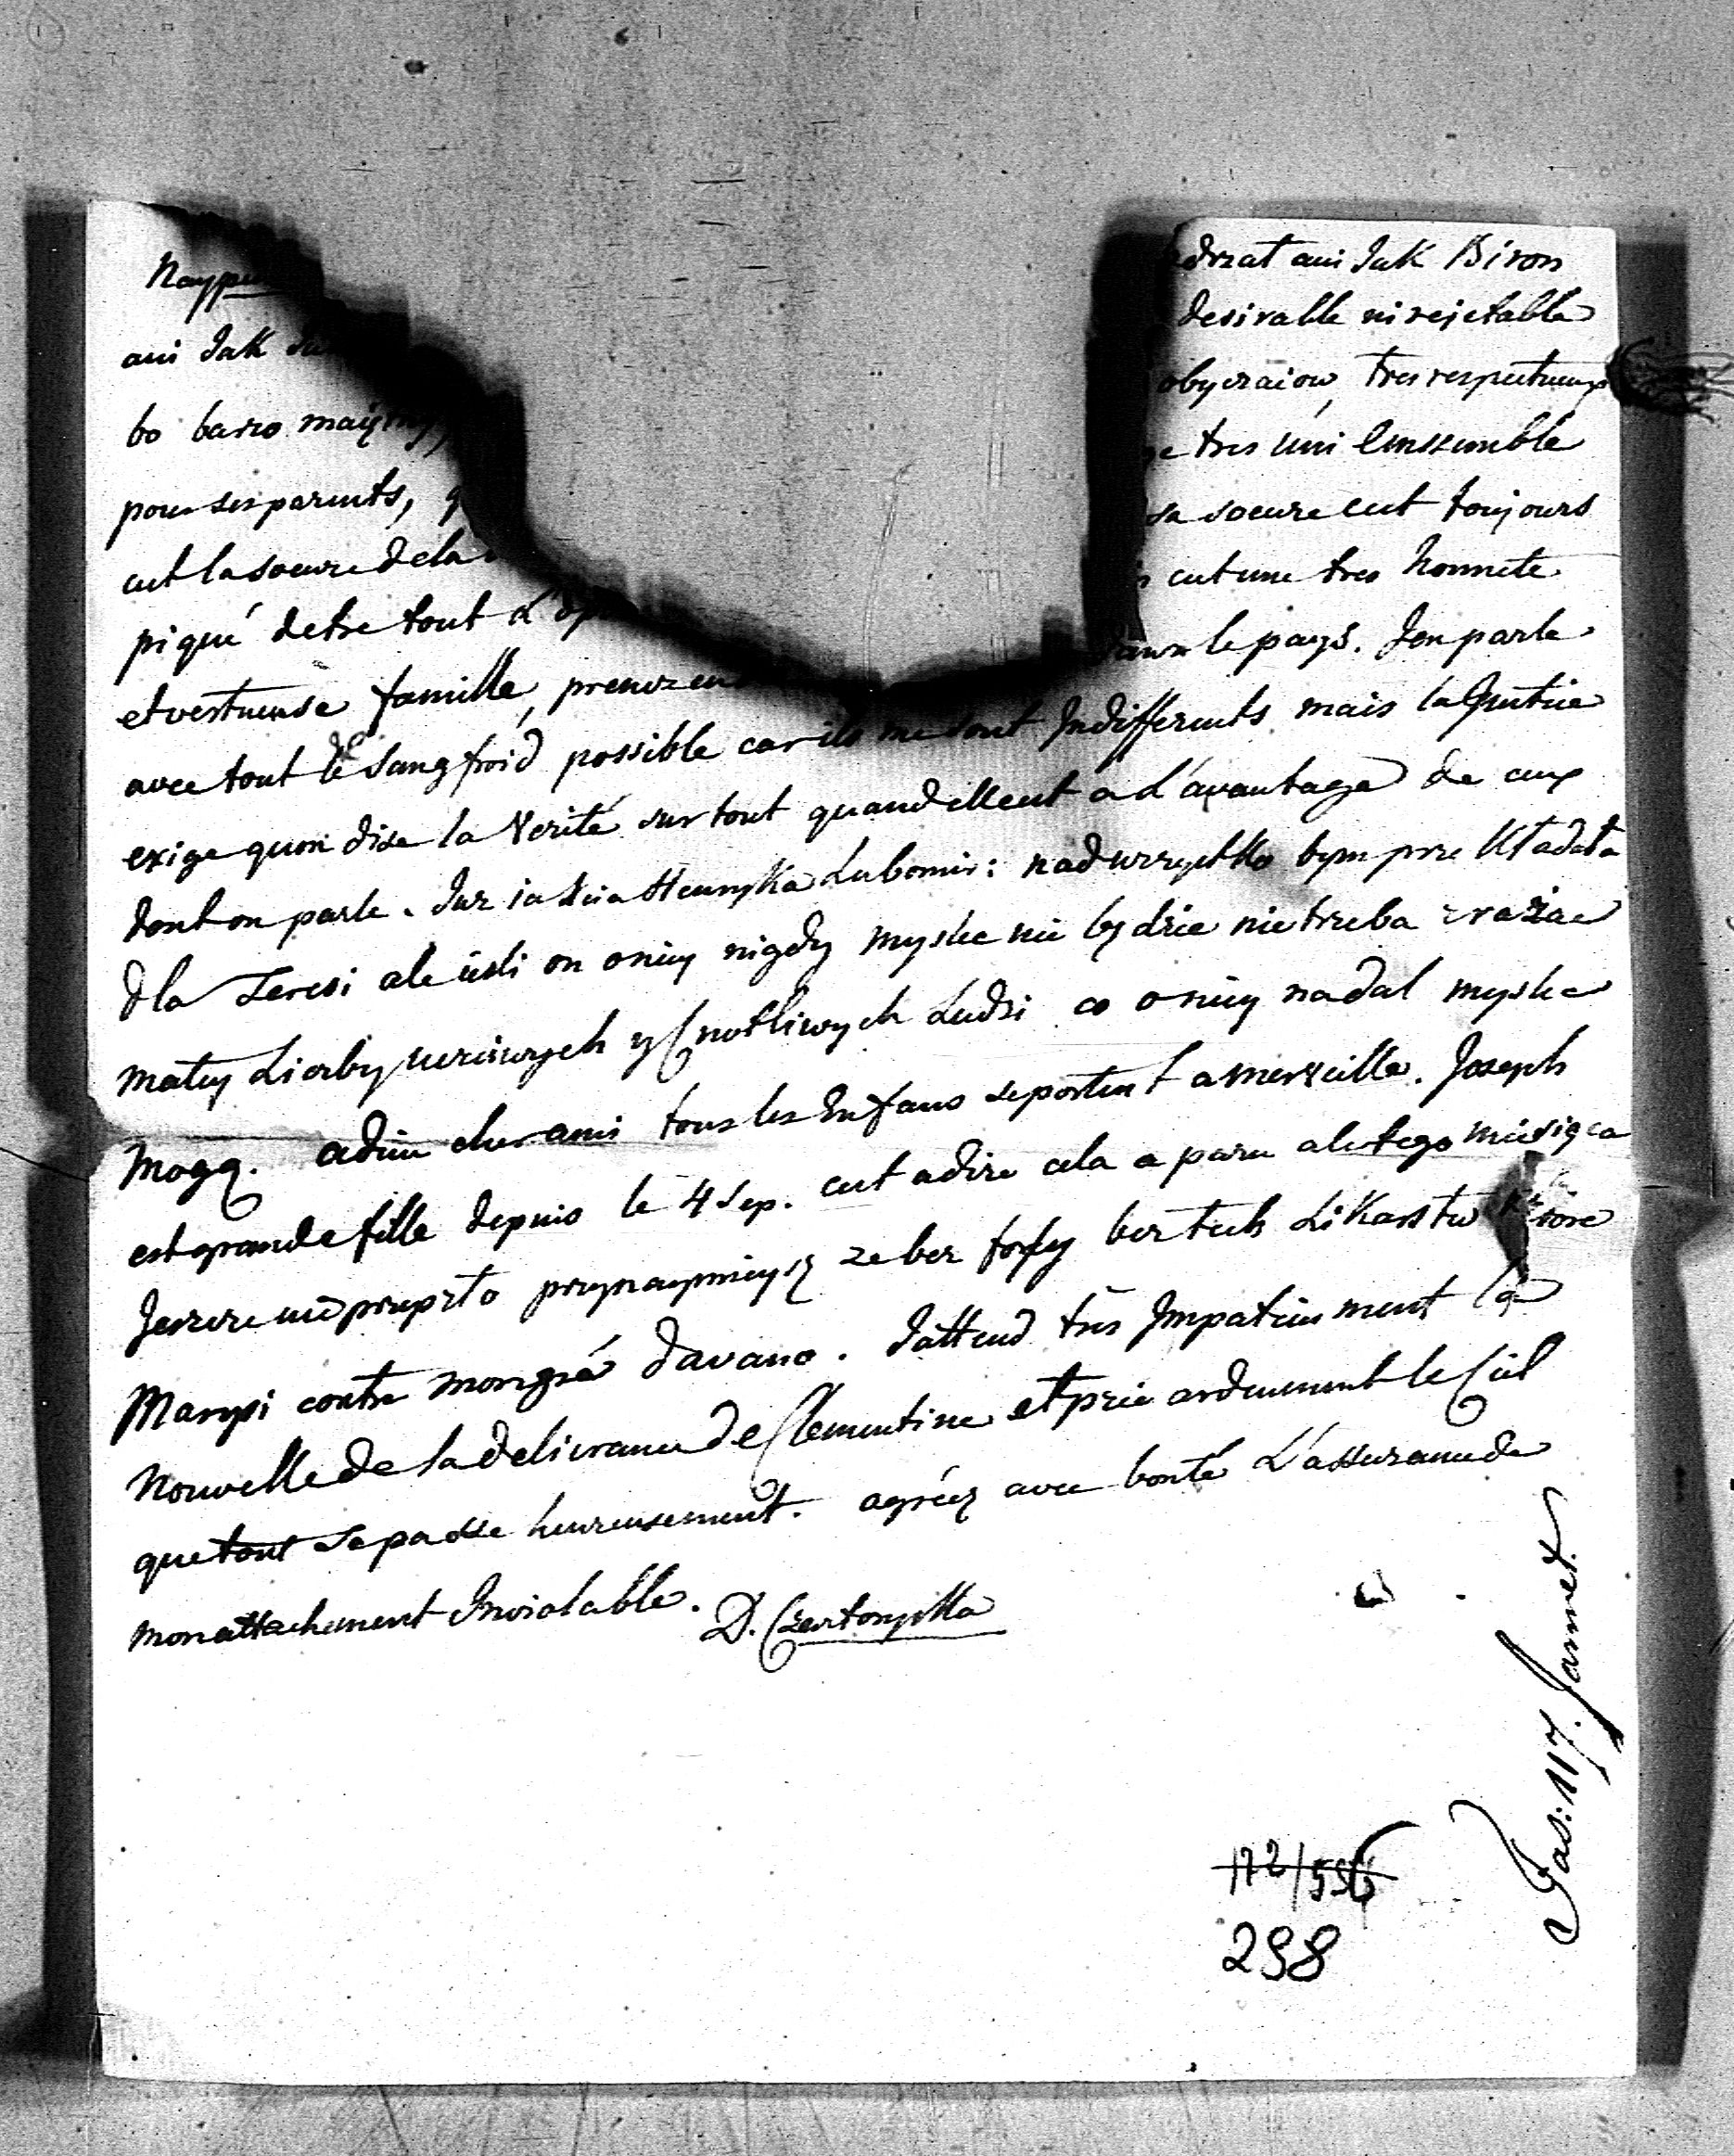 drzat ani Jak Biron
ani Jak desirable ni rejetable
bo barzo obyczaiow, tres respectueux
pour ses parents, tres uni Enssemble
cut la soeure dela sa soeure cut toujours
piqué detre tout cut une tres honnete
et vertueuse famille, dans le pays. Jen parle
avec tout le de Sang froid possible car ils me sont Indifferents mais la Justice
exige quon dise la Verité sur tout quand ellent a L'avantage de ceux
dont on parle. Juz ia Xcia Henryka Lubomir: nad wszystko bym prze Kładała
dla Teresi ale iesli on oniey nigdy myslec nie bydzie nie trzeba zrażac
małey Liczby ucziwych y Cnotliwych Ludzi co oniey nadal myslec
mogą. adieu cher ami tous les Enfans se portent a merveille. Joseph
est grande fille depuis le 4 Sep. cut adire cela a paru ale tego miesiąca
Jeszcze nie przyszło przynaymniey ze bez forsy bez tych Likarstw Ktore
Marysi contre mongré davano. Jattend très Impatiemment la
Nouvelle de la delivrance de Clementine et prie ardemment le Ciel
que tout se passe heureusement. agréez avec bonté L'assurance de
mon attachement Inviolable. D. Czartoryska
Fas: 117.
172/556
298